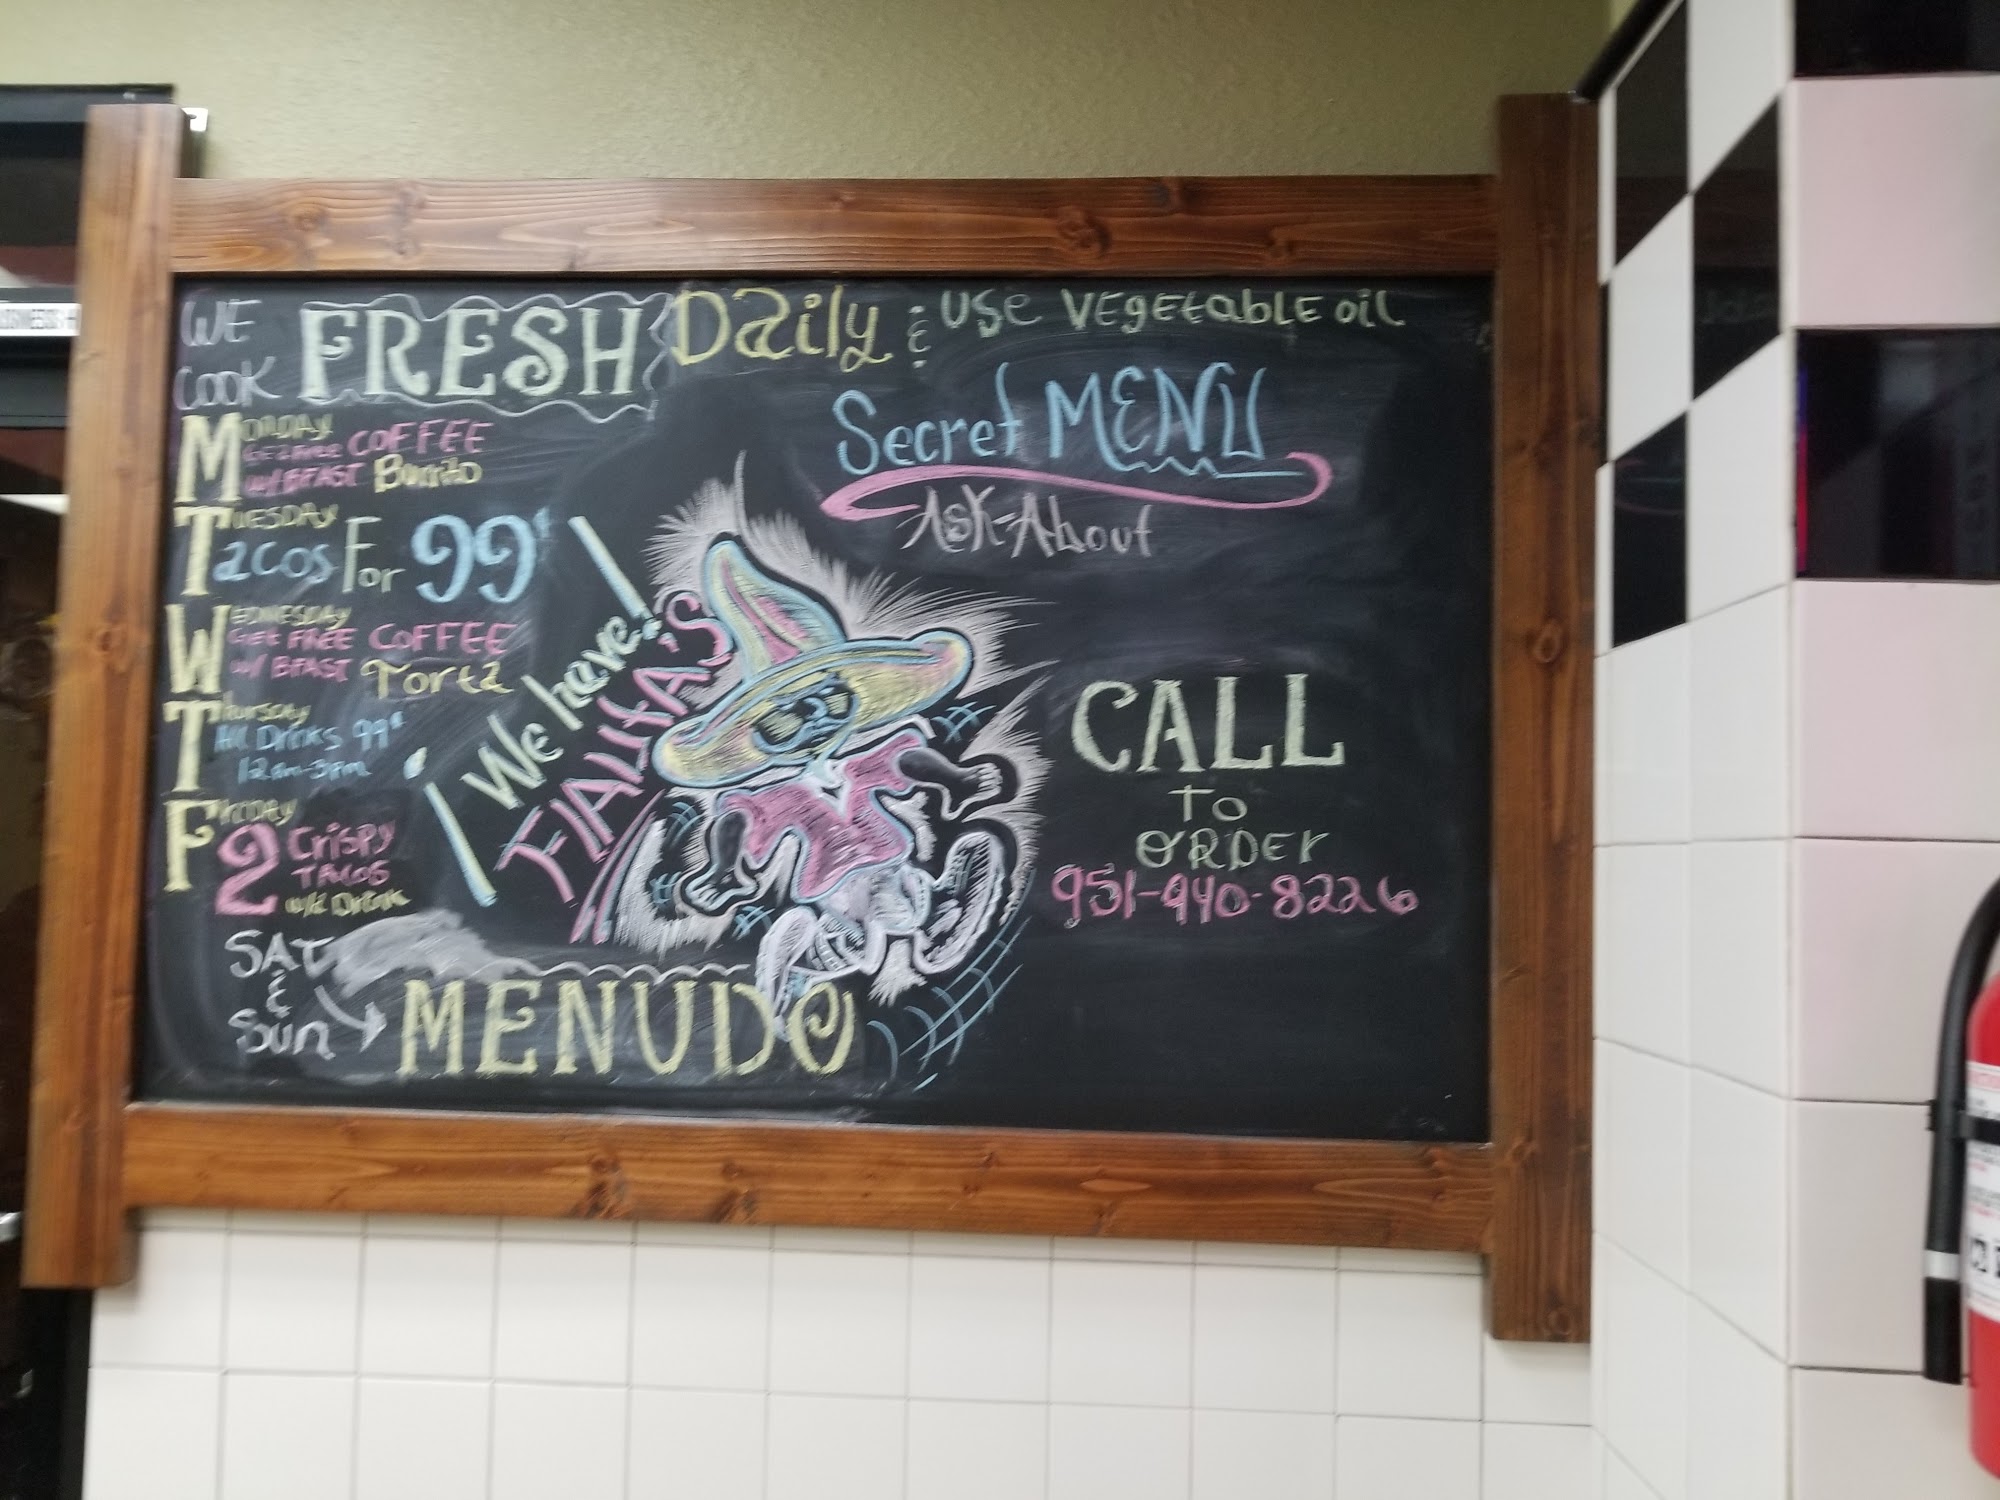 WE COOK FRESH Daily & USE VEGETABLE OIL
MONDAY
GET FREE COFFEE
w/ BFAST Burrito
TUESDAY
Tacos For 99¢
WEDNESDAY
GET FREE COFFEE
w/ BFAST Torta
Thursday
All Drinks 99¢
12am-3pm
FRIDAY
2 Crispy
TACOS
w/ Drink
SAT
&
Sun
MENUDO
¡We have!
Secret MENU
ASK-About
CALL
TO
ORDER
951-940-8226